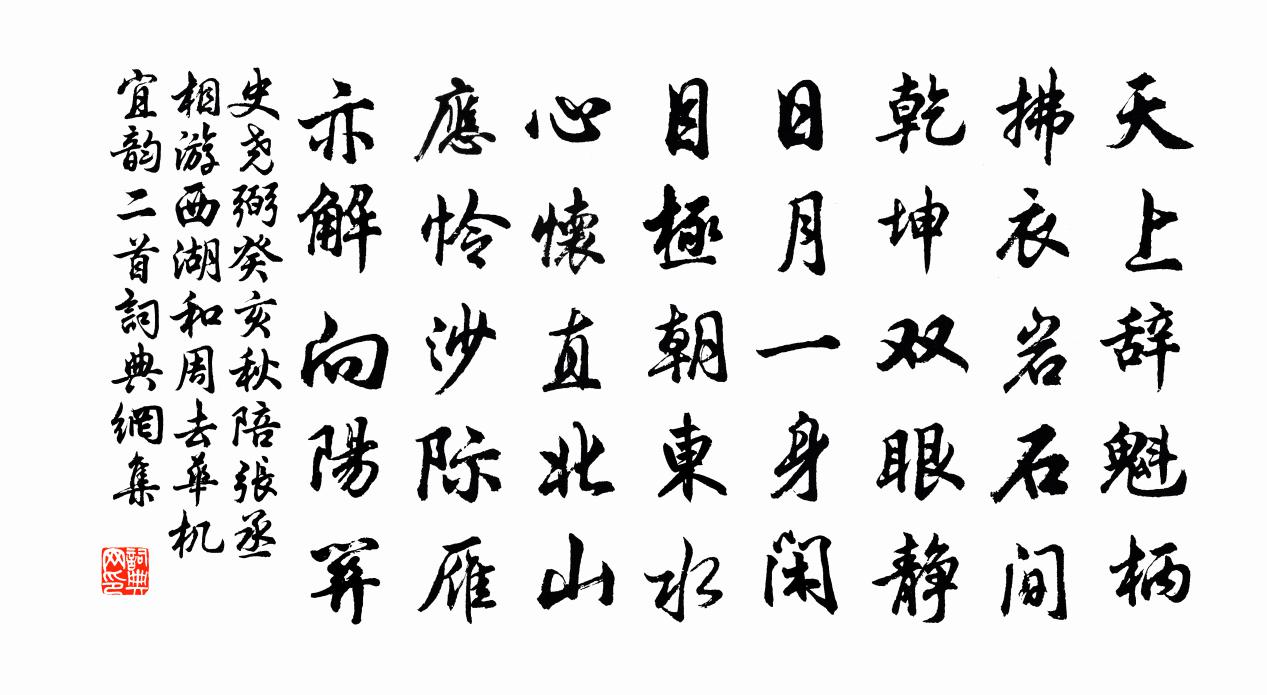 天上辞魁柄
拂衣岩石间
乾坤双眼静
日月一身闲
目极朝东水
心怀直北山
應怜沙际雁
亦解向陽関
史尧弼癸亥秋陪張丞
相游西湖和周去華机
宜韵二首詞典網集
詞典